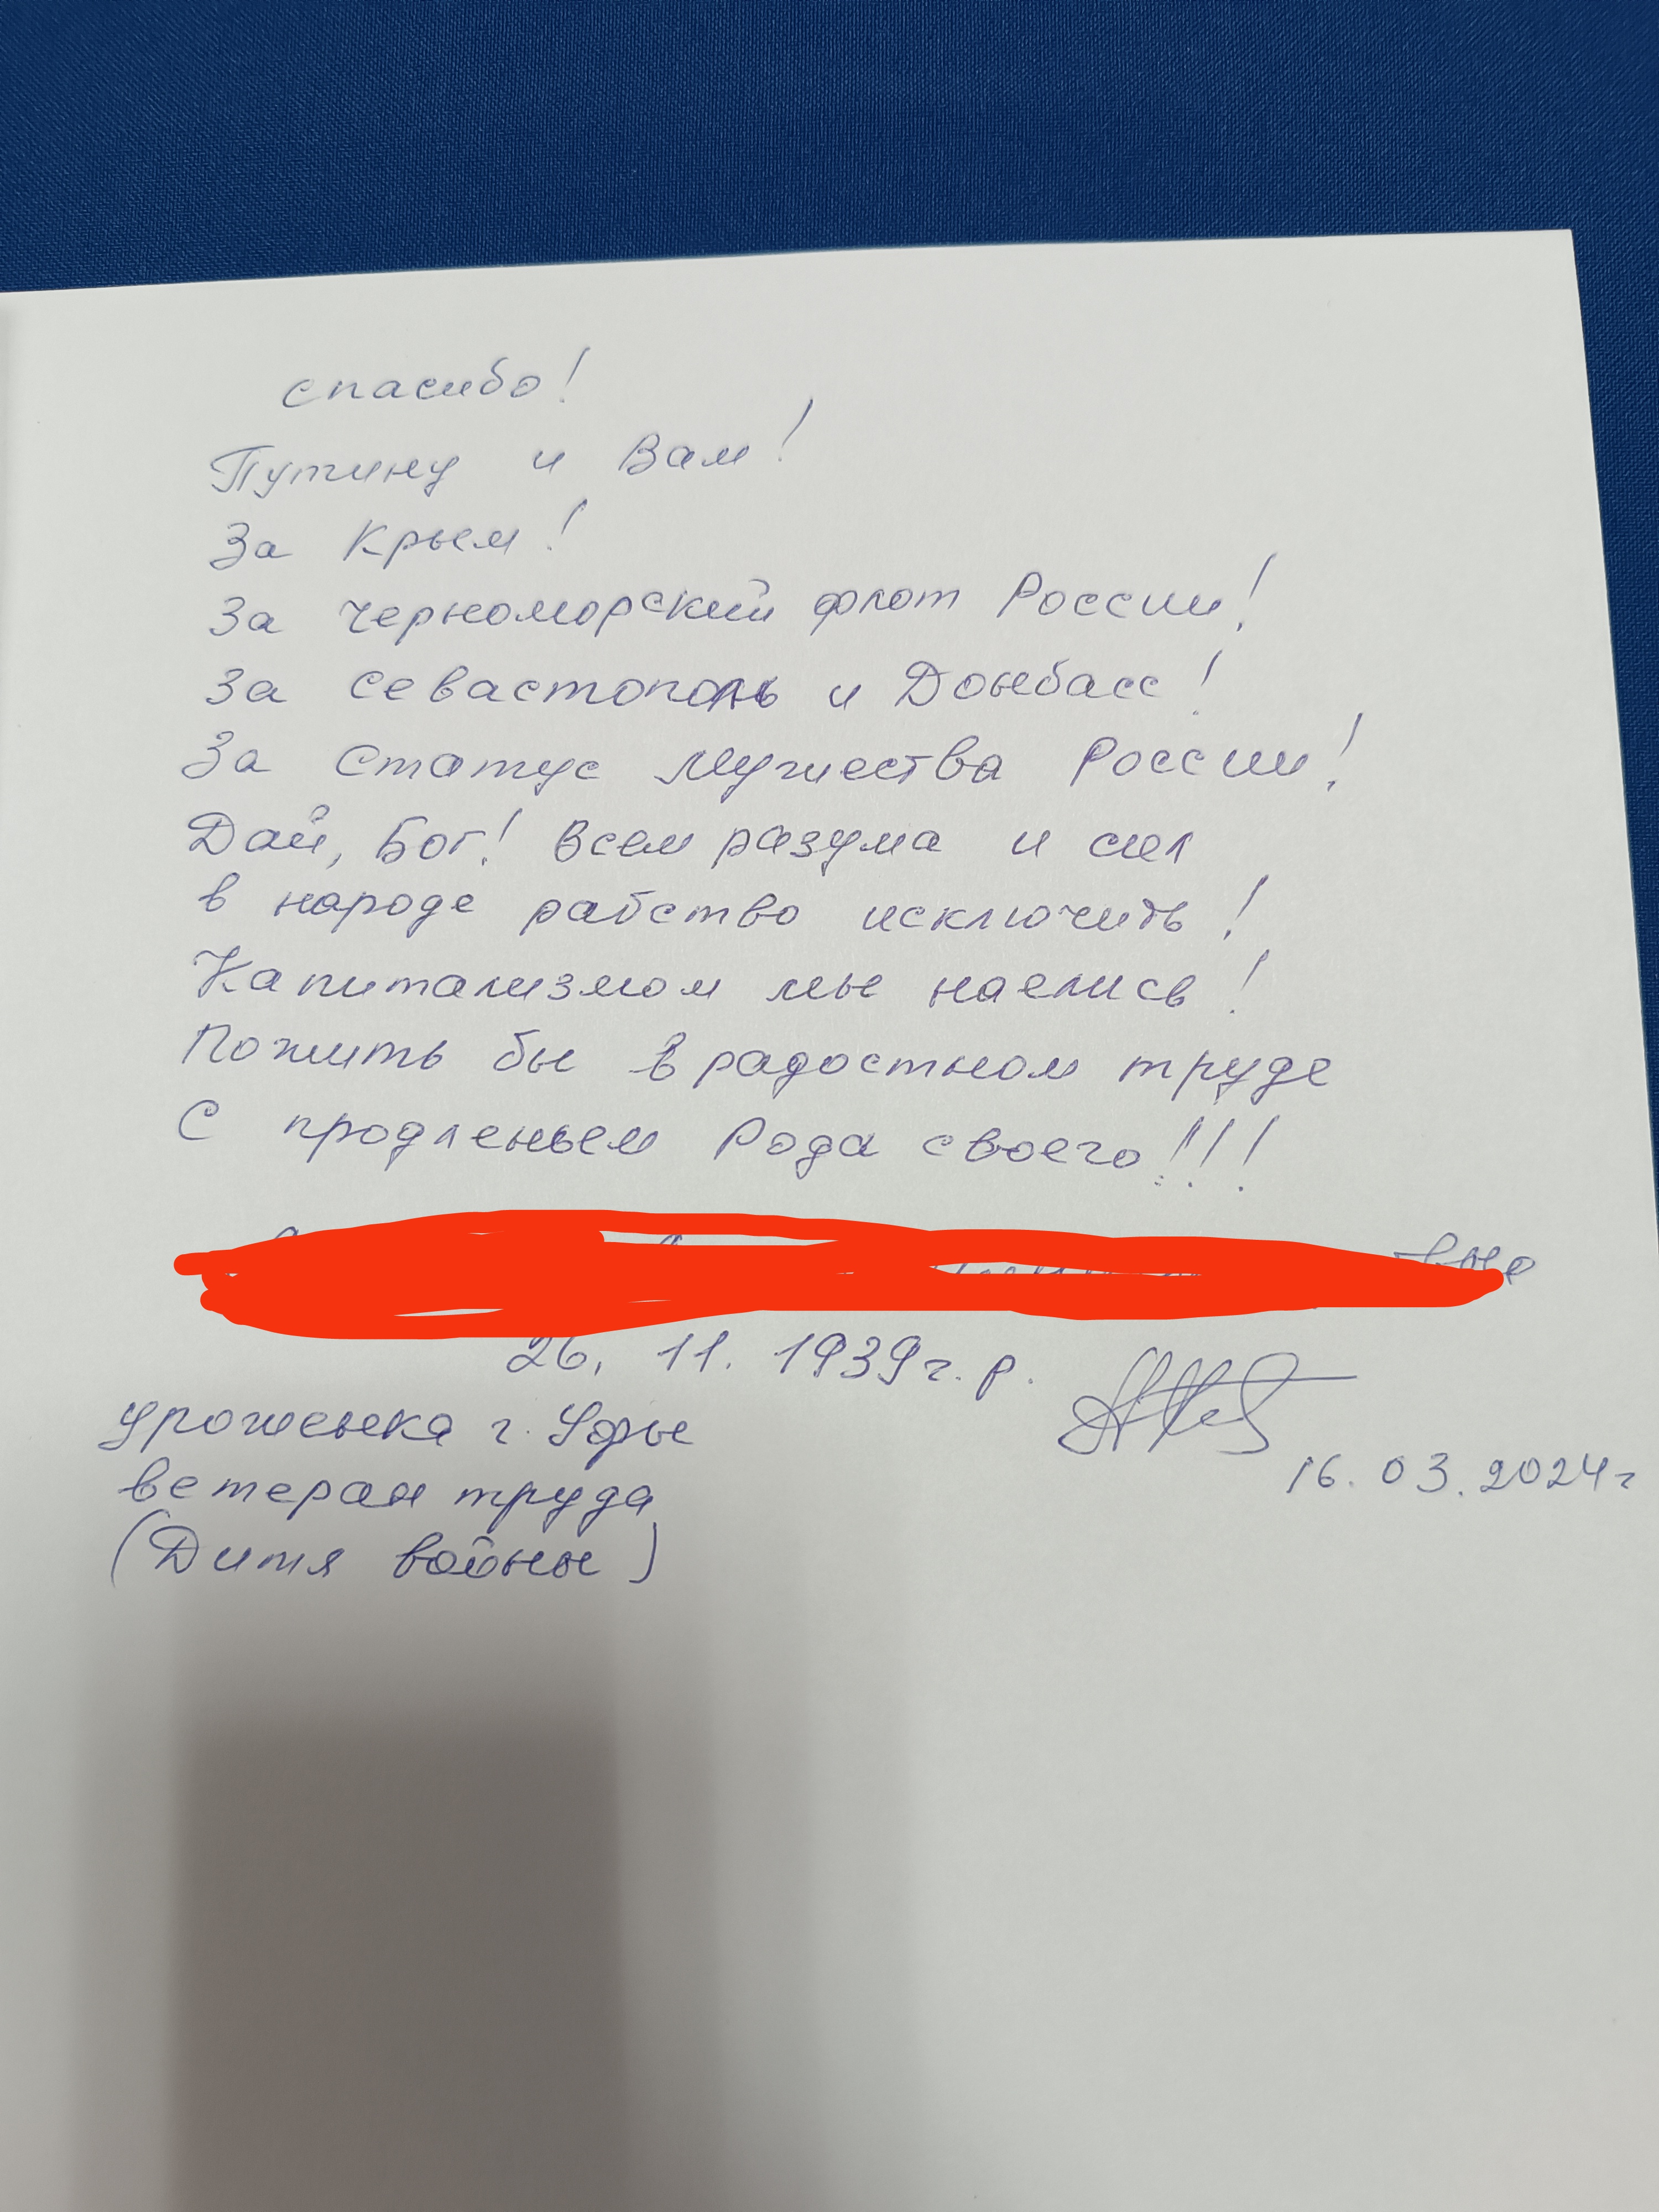 спасибо!
Путину и Вам!
За Крым!
За Черноморский флот России!
За Севастополь и Донбасс!
За Статус Мужества России!
Дай, Бог! Всем разума и сил
в народе рабство исключить!
Капитализмом мы наелись!
Пожить бы в радостном труде
С продленьем Рода своего!!!
26. 11. 1939г. р.
Уроженка г. Уфы
ветеран труда
(Дитя войны)
16. 03. 2024г